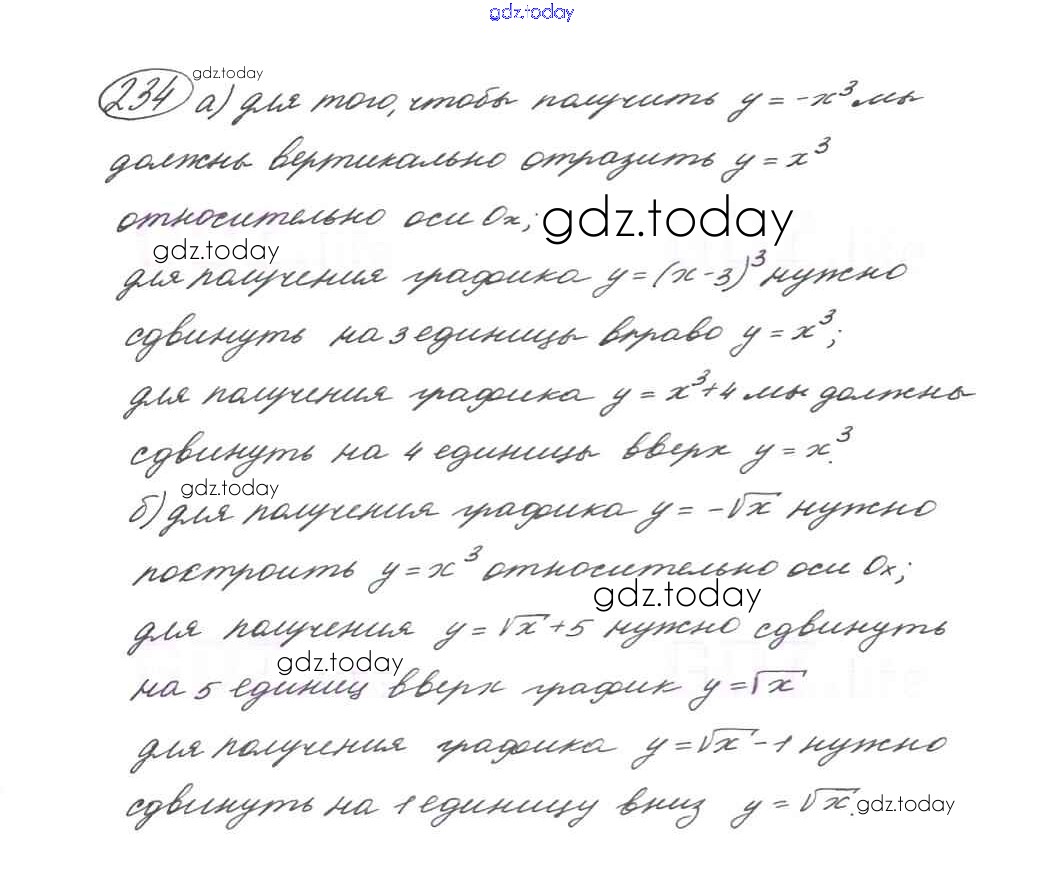 gdz.today
gdz.today
234 а) для того, чтобы получить y = -x³ мы
должны вертикально отразить y = x³
относительно оси Ox; gdz.today
gdz.today
для получения графика y = (x - 3)³ нужно
сдвинуть на 3 единицы вправо y = x³;
для получения графика y = x³+4 мы должны
сдвинуть на 4 единицы вверх y = x³.
gdz.today
б) для получения графика y = -√x нужно
построить y = x³ относительно оси Ox;
gdz.today
для получения y = √x + 5 нужно сдвинуть
gdz.today
на 5 единиц вверх график y = √x
для получения графика y = √x - 1 нужно
сдвинуть на 1 единицу вниз y = √x. gdz.today